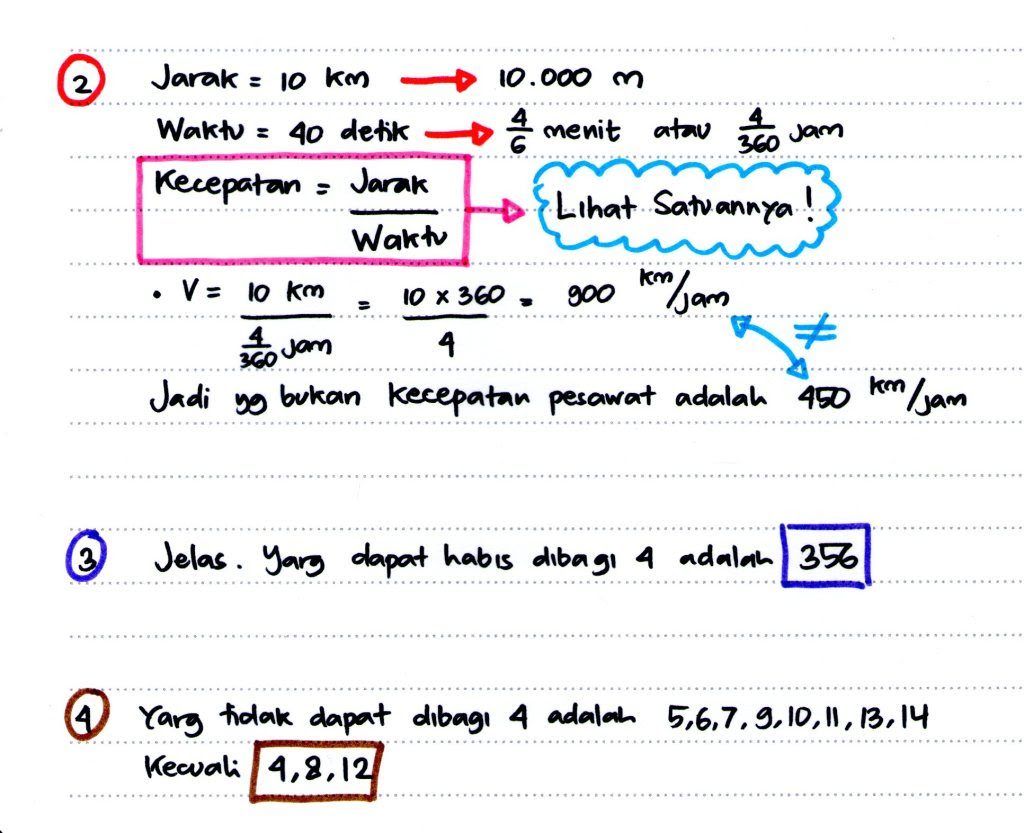 2 Jarak = 10 km → 10.000 m
Waktu = 40 detik → 4/6 menit atau 4/360 jam
Kecepatan = Jarak / Waktu → Lihat Satuannya !
• V = 10 km / 4/360 jam = 10 x 360 / 4 = 900 km/jam
≠
Jadi yg bukan kecepatan pesawat adalah 450 km/jam
3 Jelas. Yang dapat habis dibagi 4 adalah 356
4 Yang tidak dapat dibagi 4 adalah 5,6,7,9,10,11,13,14
Kecuali 4,8,12